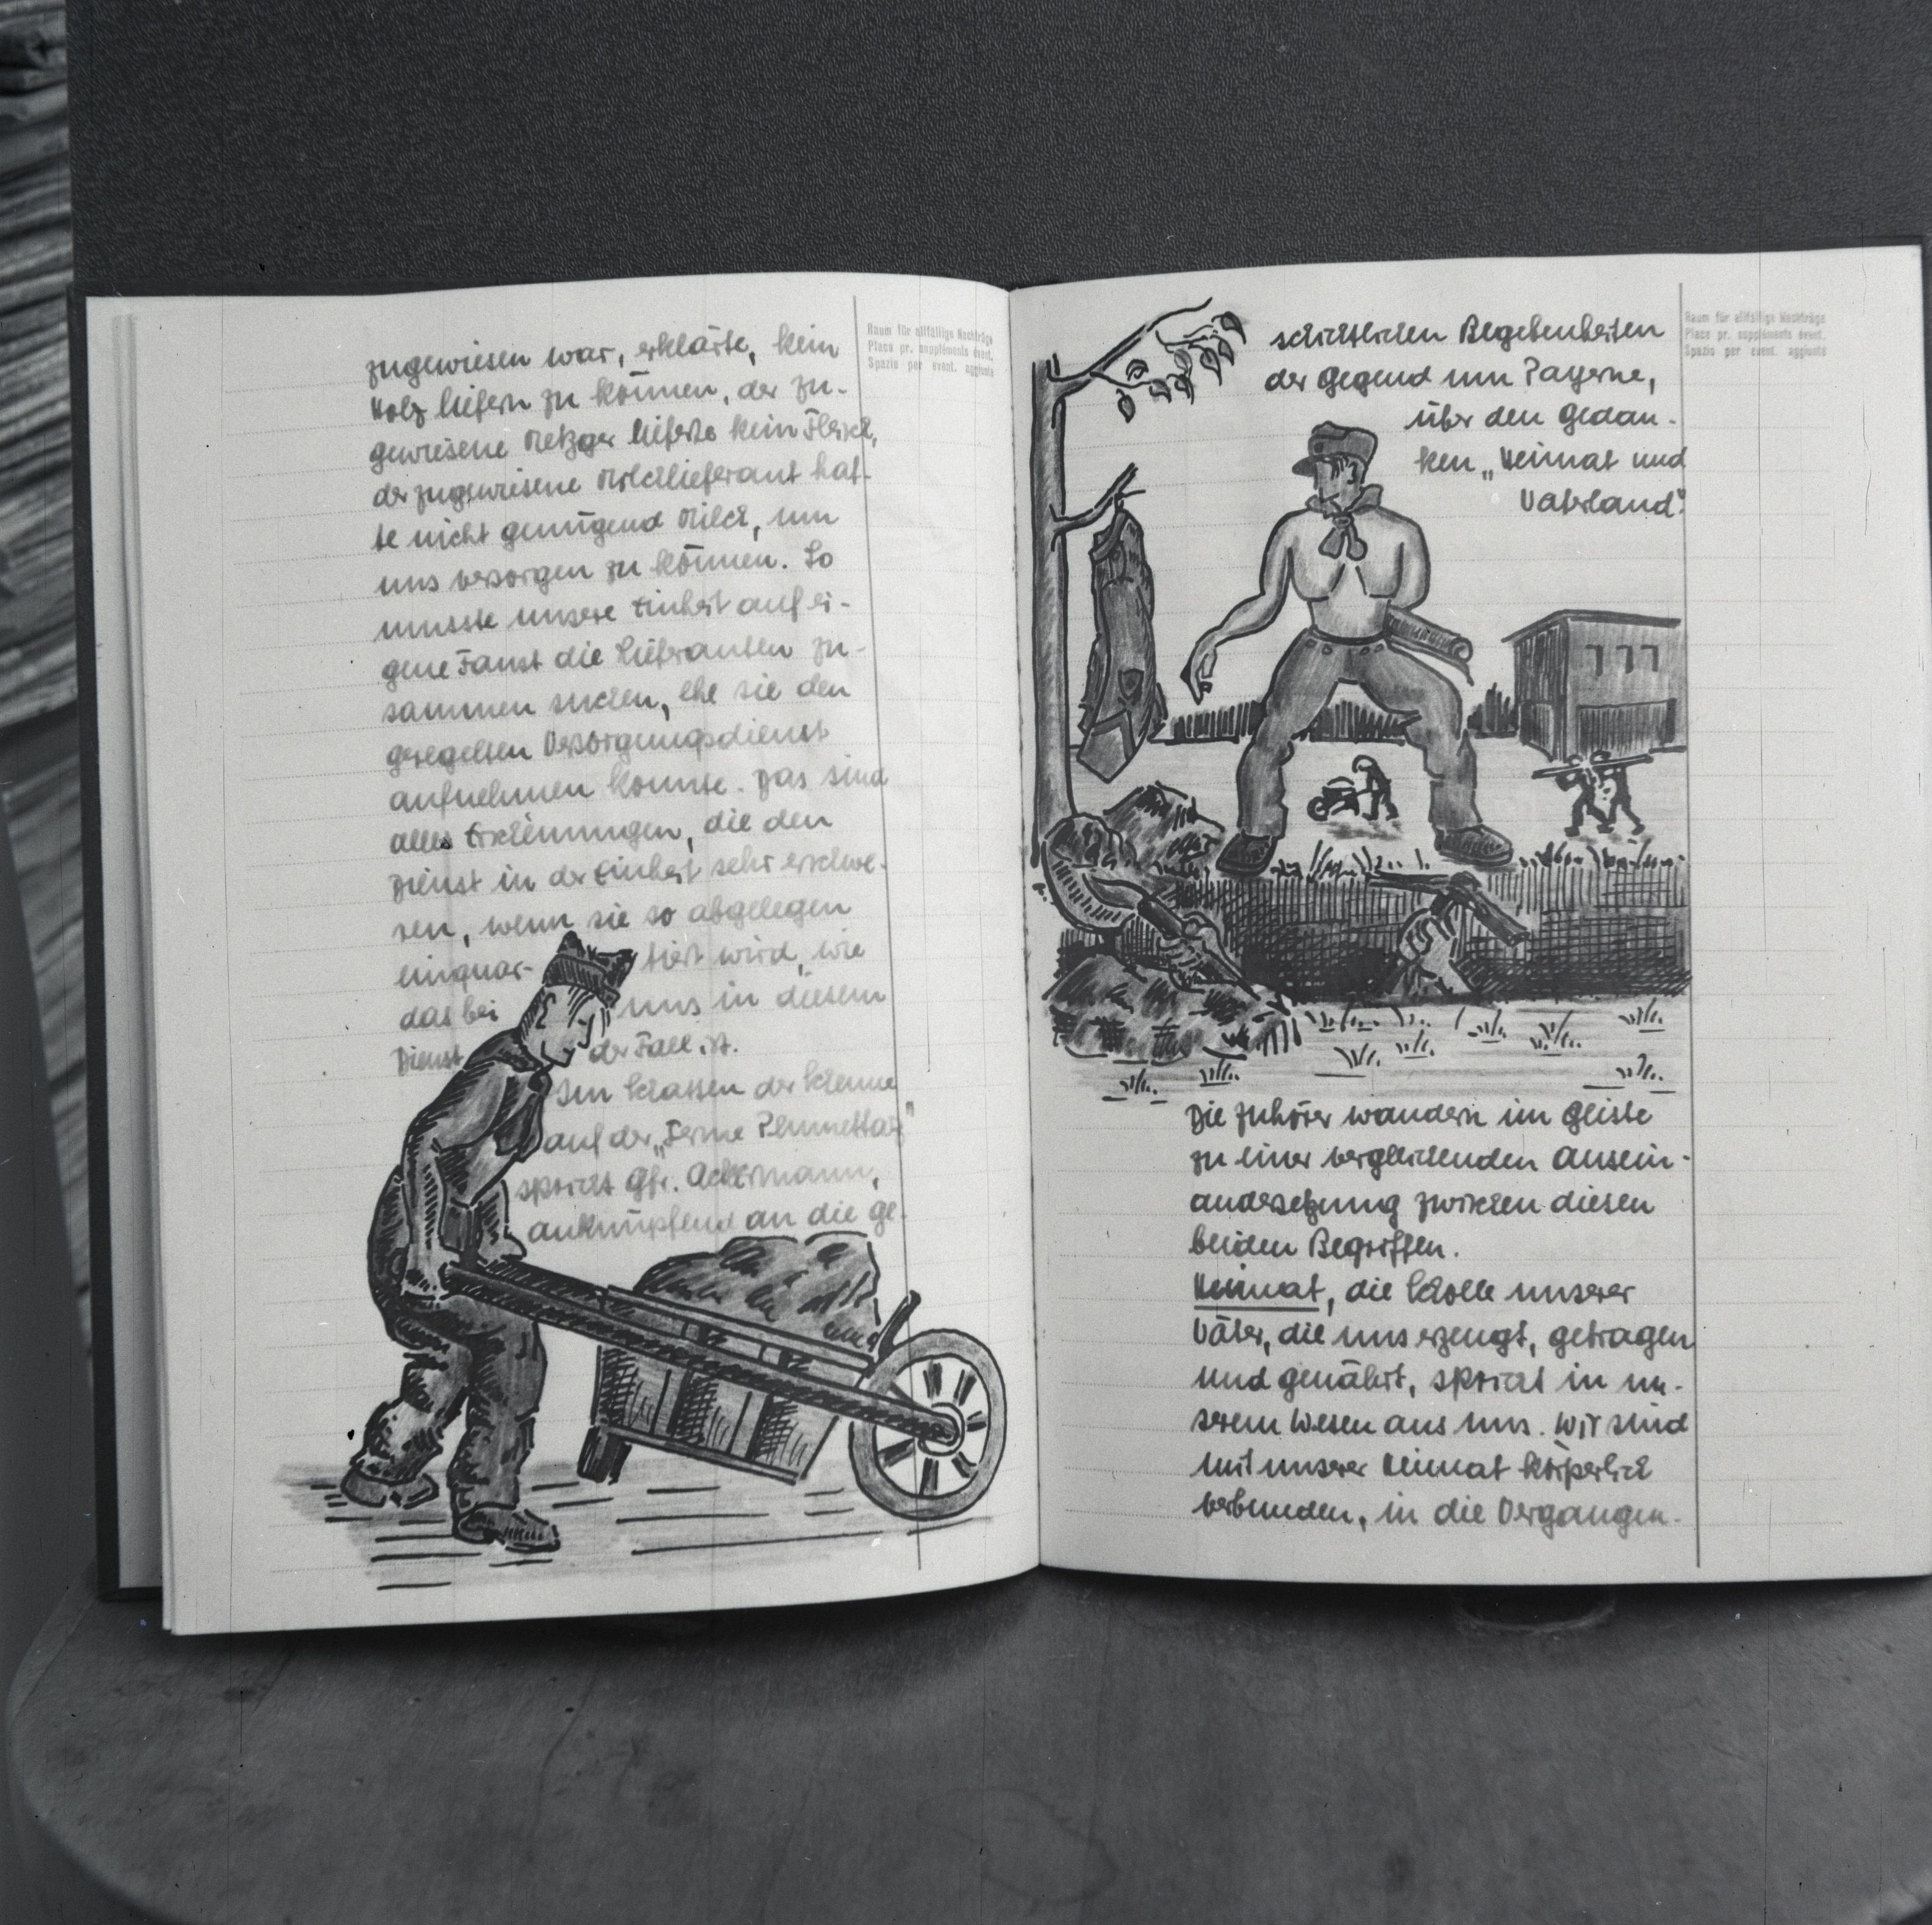 zugewiesen war, erklärte, kein
Holz liefern zu können, der zu-
gewiesene Metzger lieferte kein Fleisch,
der zugewiesene Milchlieferant hat-
te nicht genügend Milch, um
uns versorgen zu können. So
musste unsere Einheit auf ei-
gene Faust die Lieferanten zu-
sammen suchen, ehe sie den
geregelten Versorgungsdienst
aufnehmen konnte. Das sind
alles Erscheinungen, die den
Dienst in der Einheit sehr erschwe-
ren, wenn sie so abgelegen
einquar- tiert wird, wie
das bei uns in diesem
Dienst der Fall ist.
Im Schatten der Scheune
auf der „Ferme Plumettaz"
spricht Gfr. Ackermann,
anknüpfend an die ge-
Raum für allfällige Nachträge
Place pr. suppléments évent.
Spazio per event. aggiunte
schichtlichen Begebenheiten
der Gegend um Payerne,
über den Gedan-
ken „Heimat und
Vaterland".
Die Zuhörer wandern im Geiste
zu einer vergleichenden Ausein-
andersetzung zwischen diesen
beiden Begriffen.
Heimat, die Scholle unserer
Väter, die uns erzeugt, getragen
und genährt, spricht in un-
serem Wesen aus uns. Wir sind
mit unserer Heimat körperlich
verbunden, in die Vergangen-
Raum für allfällige Nachträge
Place pr. suppléments évent.
Spazio per event. aggiunte